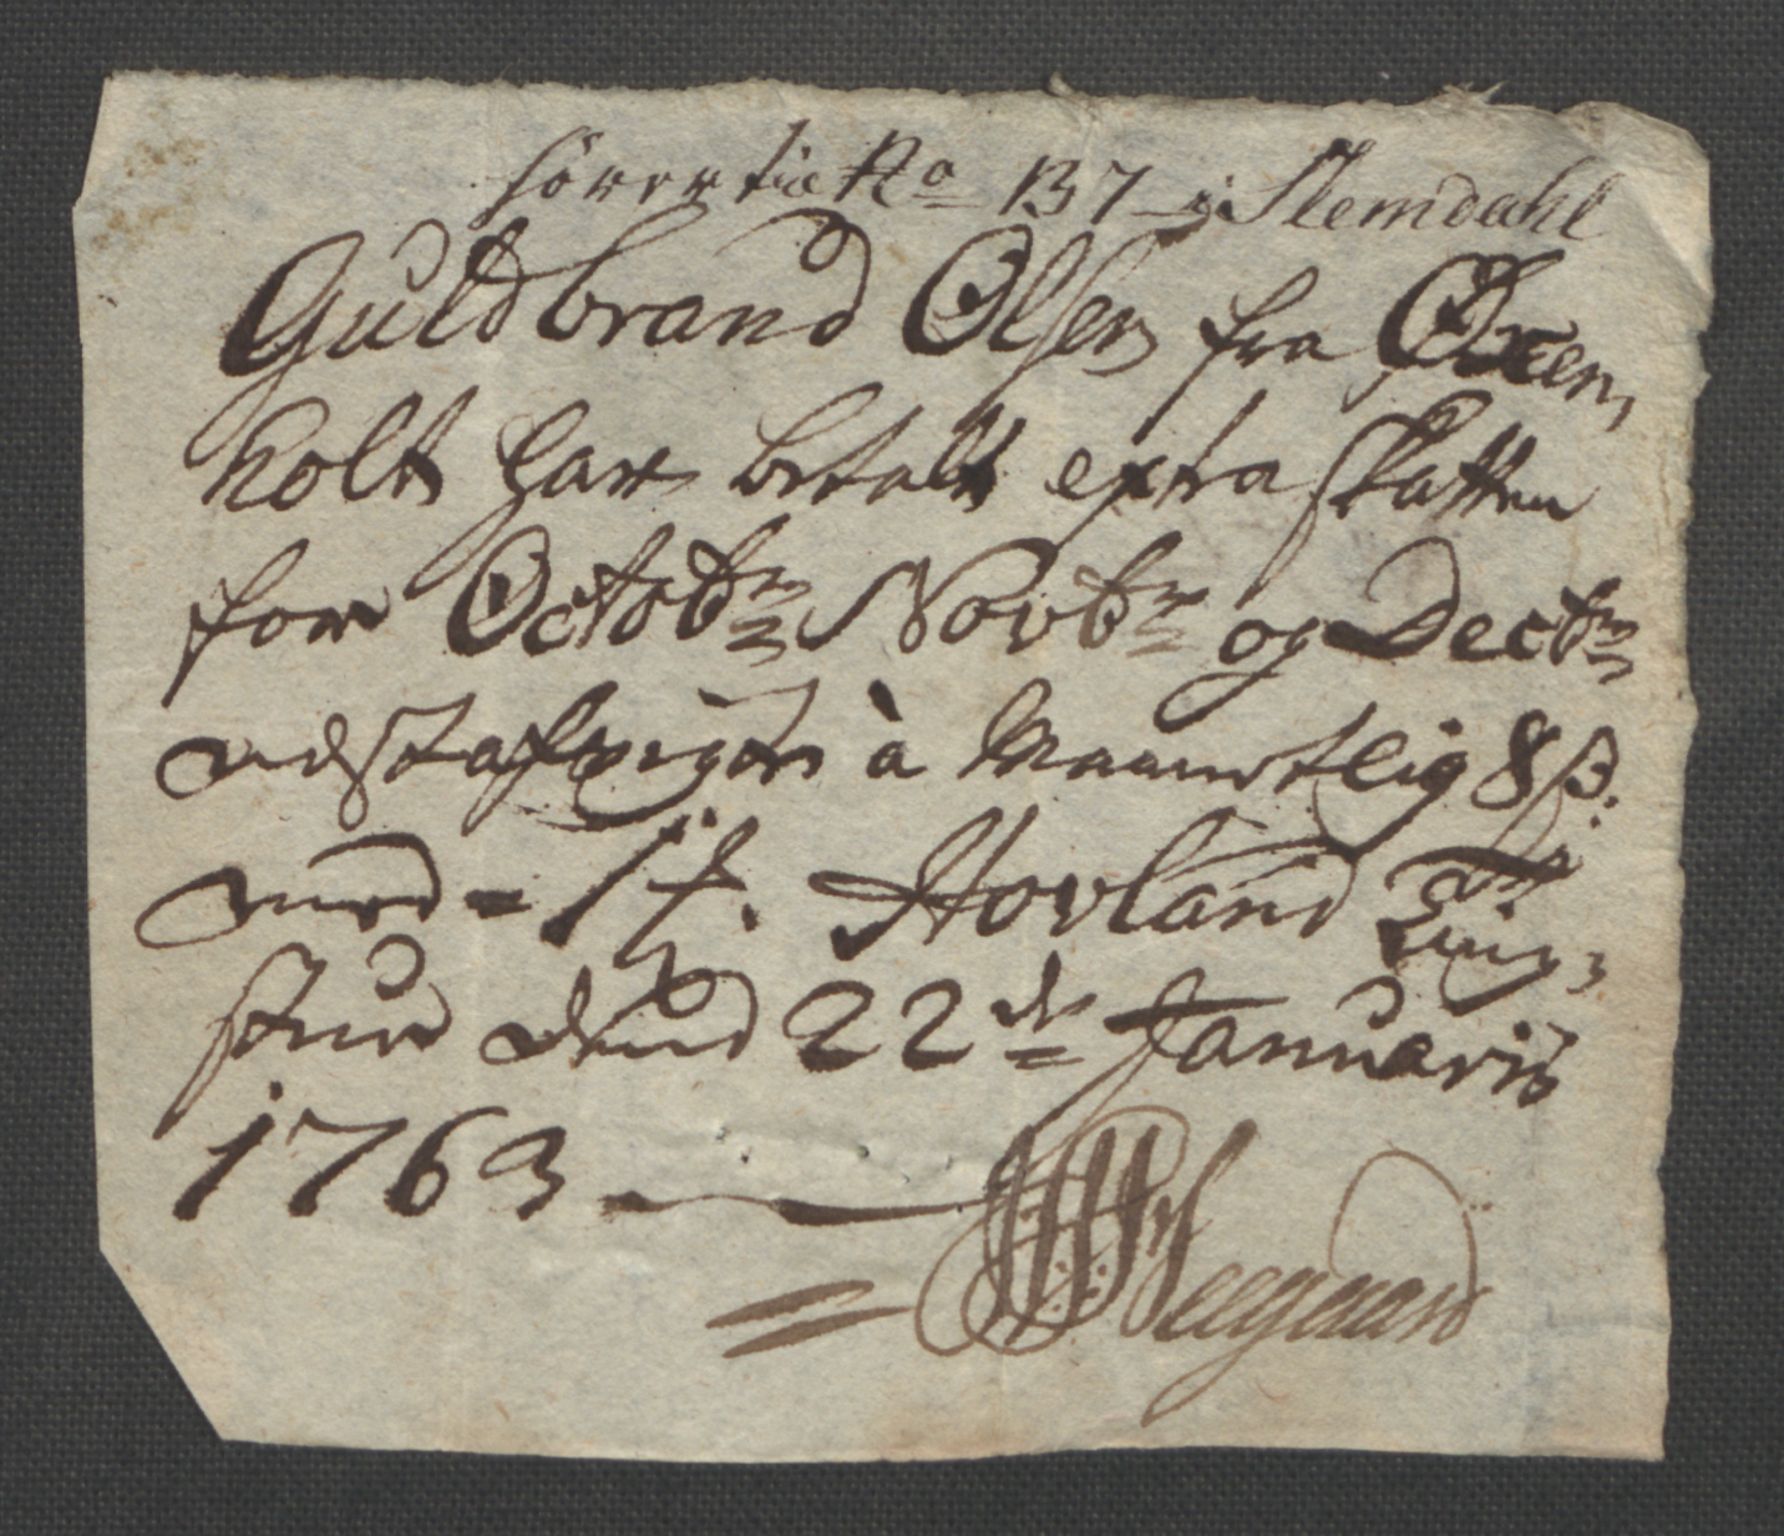 hörer til No 137 i Slemdahl
Guldbrand Olsen fra Oxen,
holt har betalt extra skatten
for Octobr Novbr og Decbr
nestafvigte à Maanetlig 8 s.
med - 1 f. Hovland Ting,
stue dend 22de Januarii
1763
Weegaard